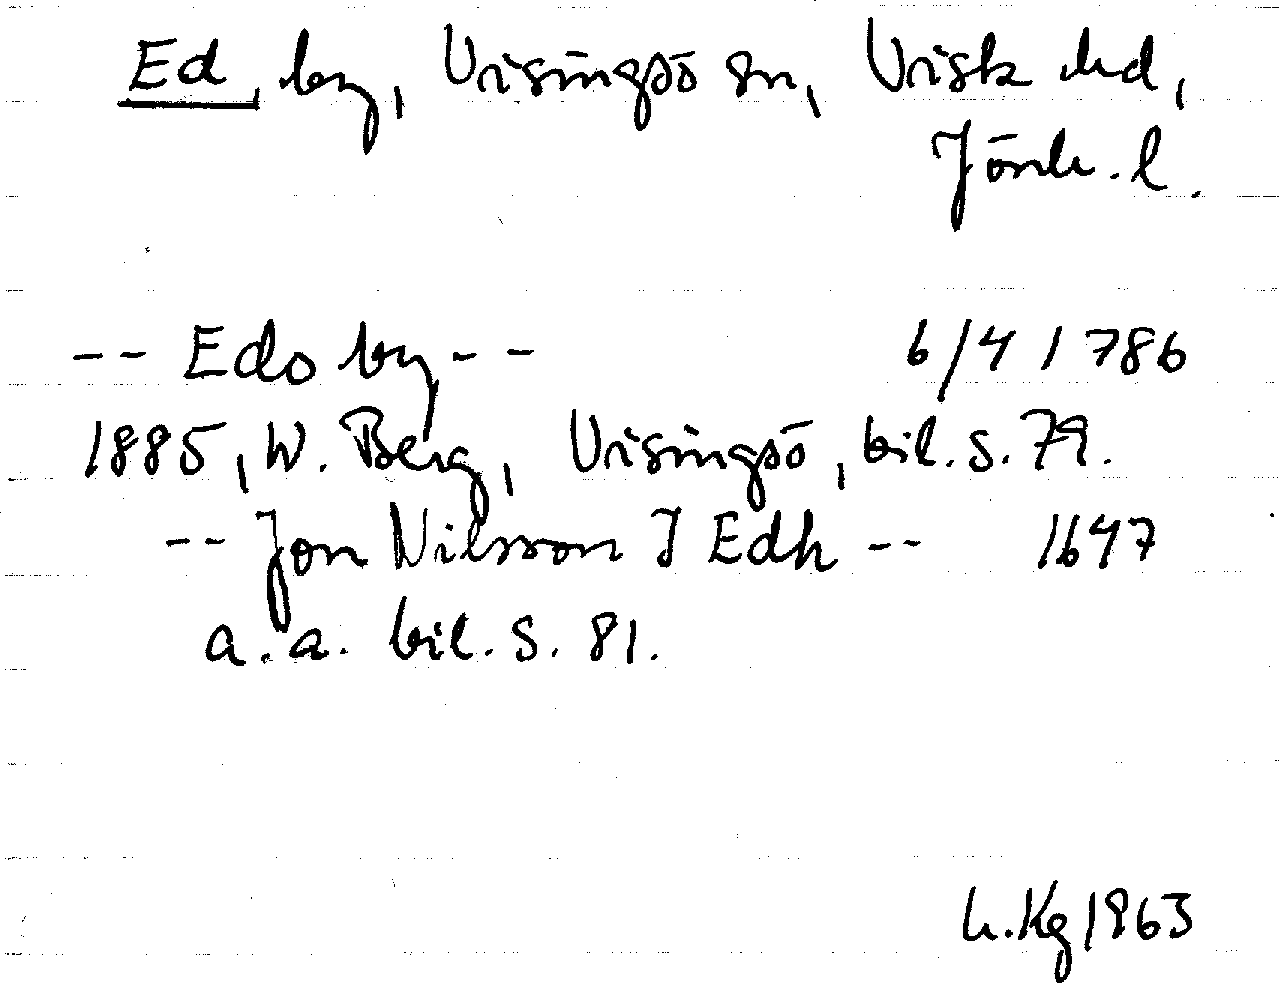 Ed, by, Visingsö sn, Visk hd,
Jönk. l.
-- Edo by -- 6/4 1786
1885, W. Berg, Visingsö, bil. s. 79.
-- Jon Nilsson J Edh -- 1647
a. a. bil. s. 81.
h. Kg 1963